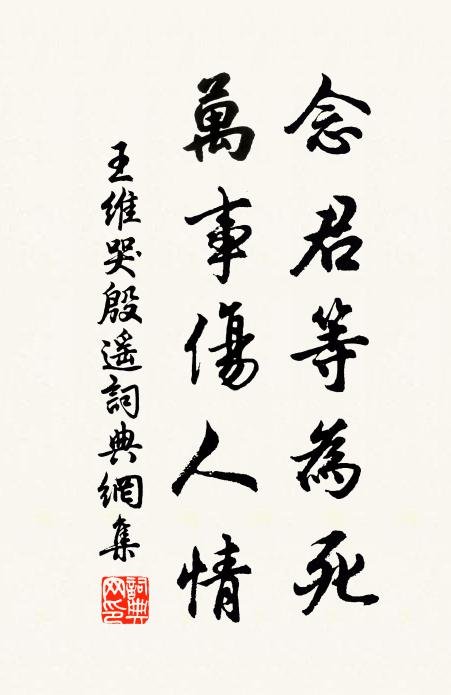 念君等為死
萬事傷人情
王維哭殷遥詞典網集
詞典網印